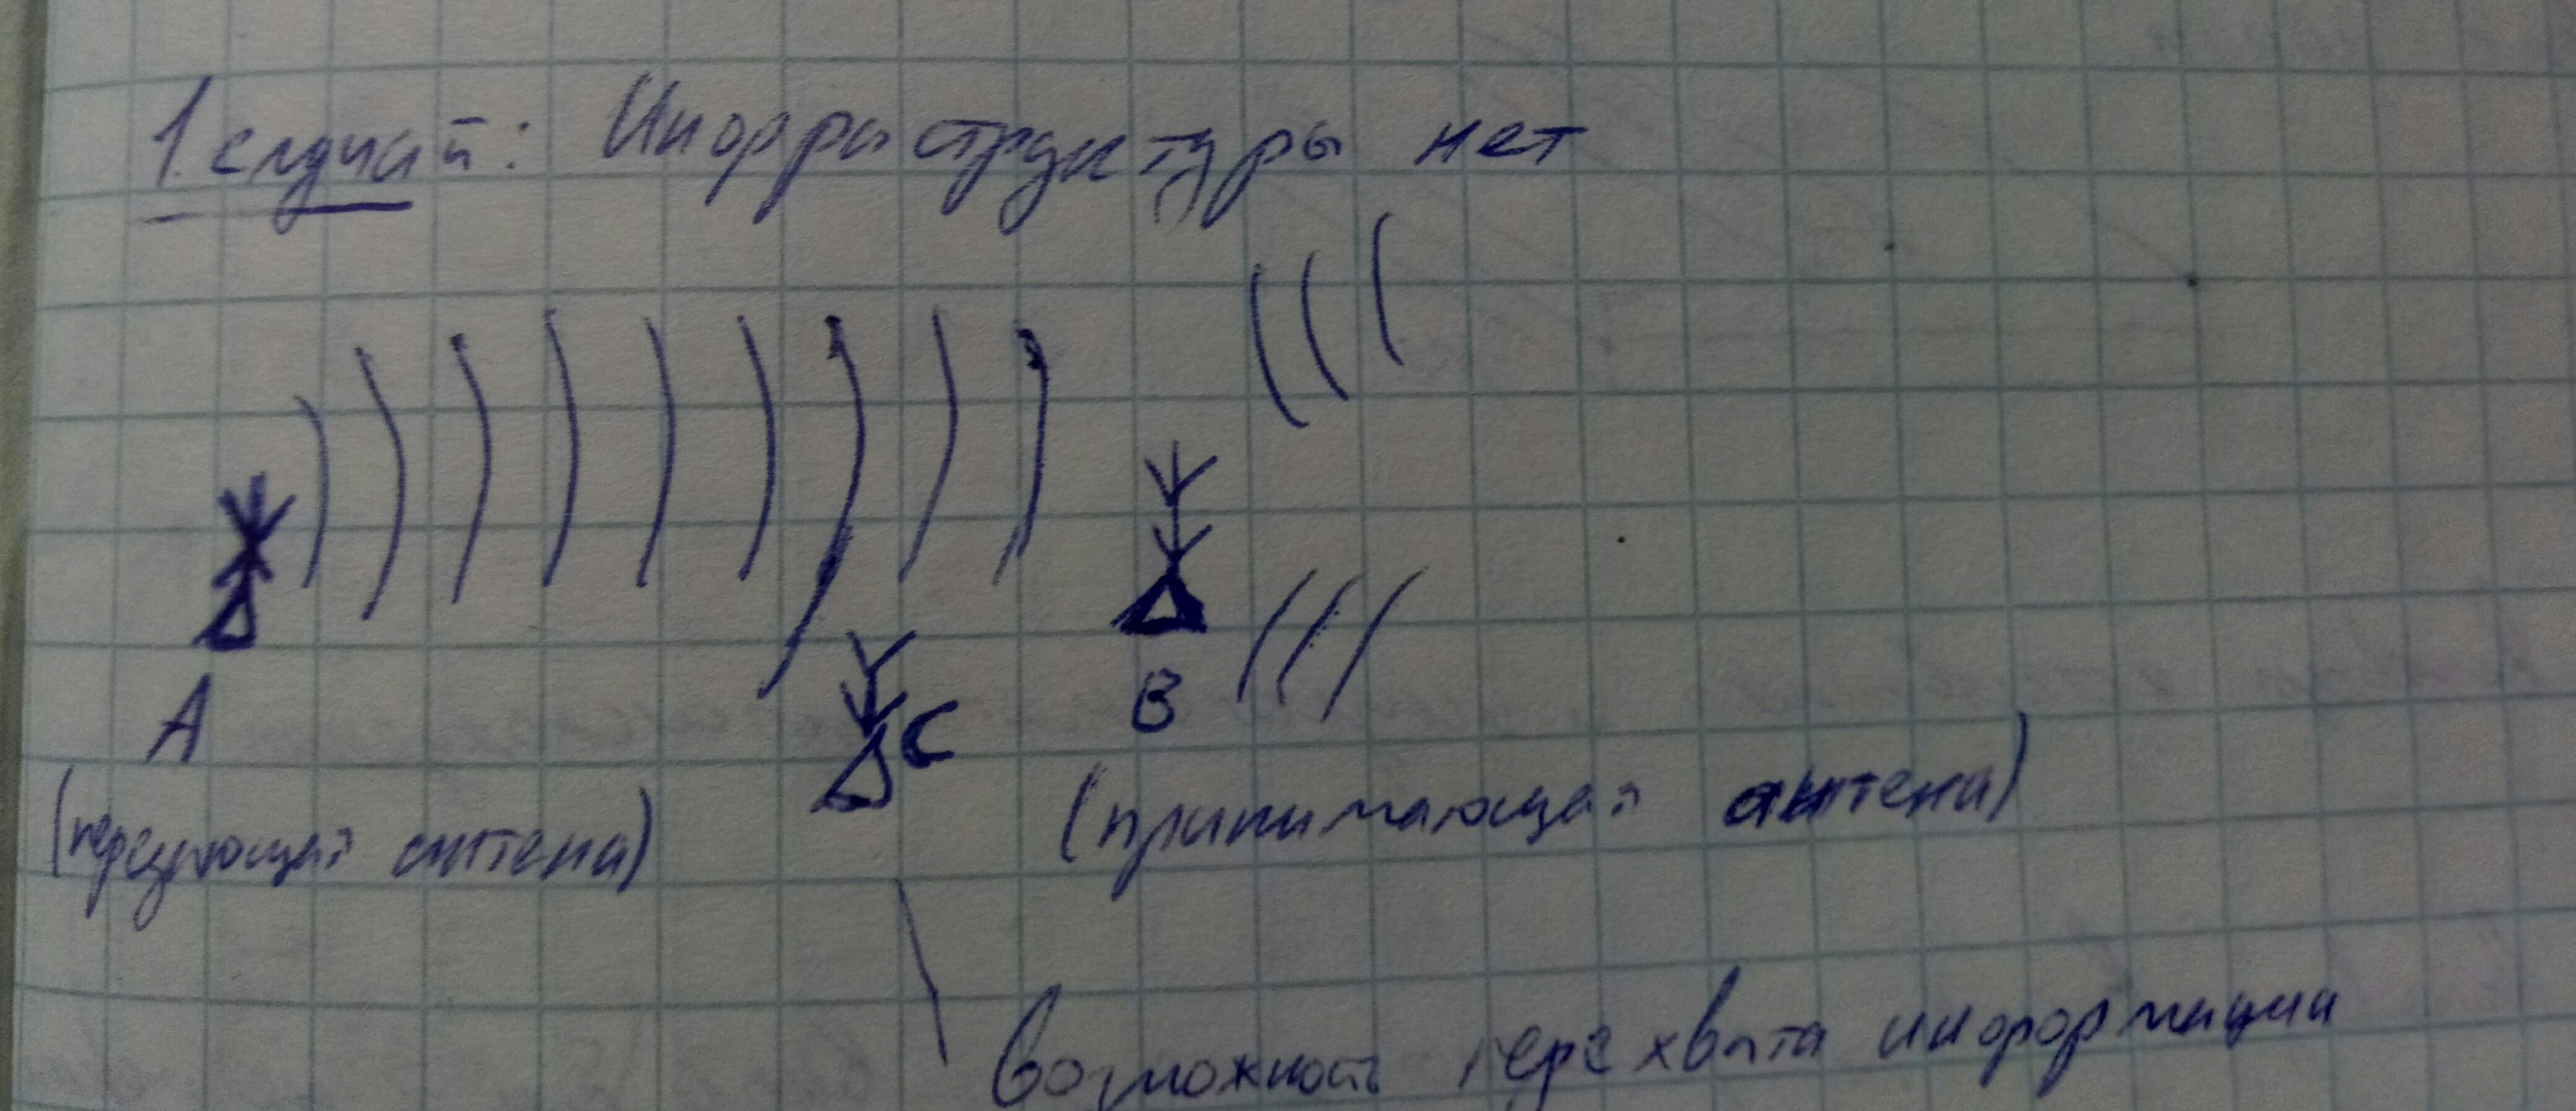 1 случай: Инфраструктуры нет
A
C
B
(передующая антена)
(принимающая антена)
Возможность перехвата информации